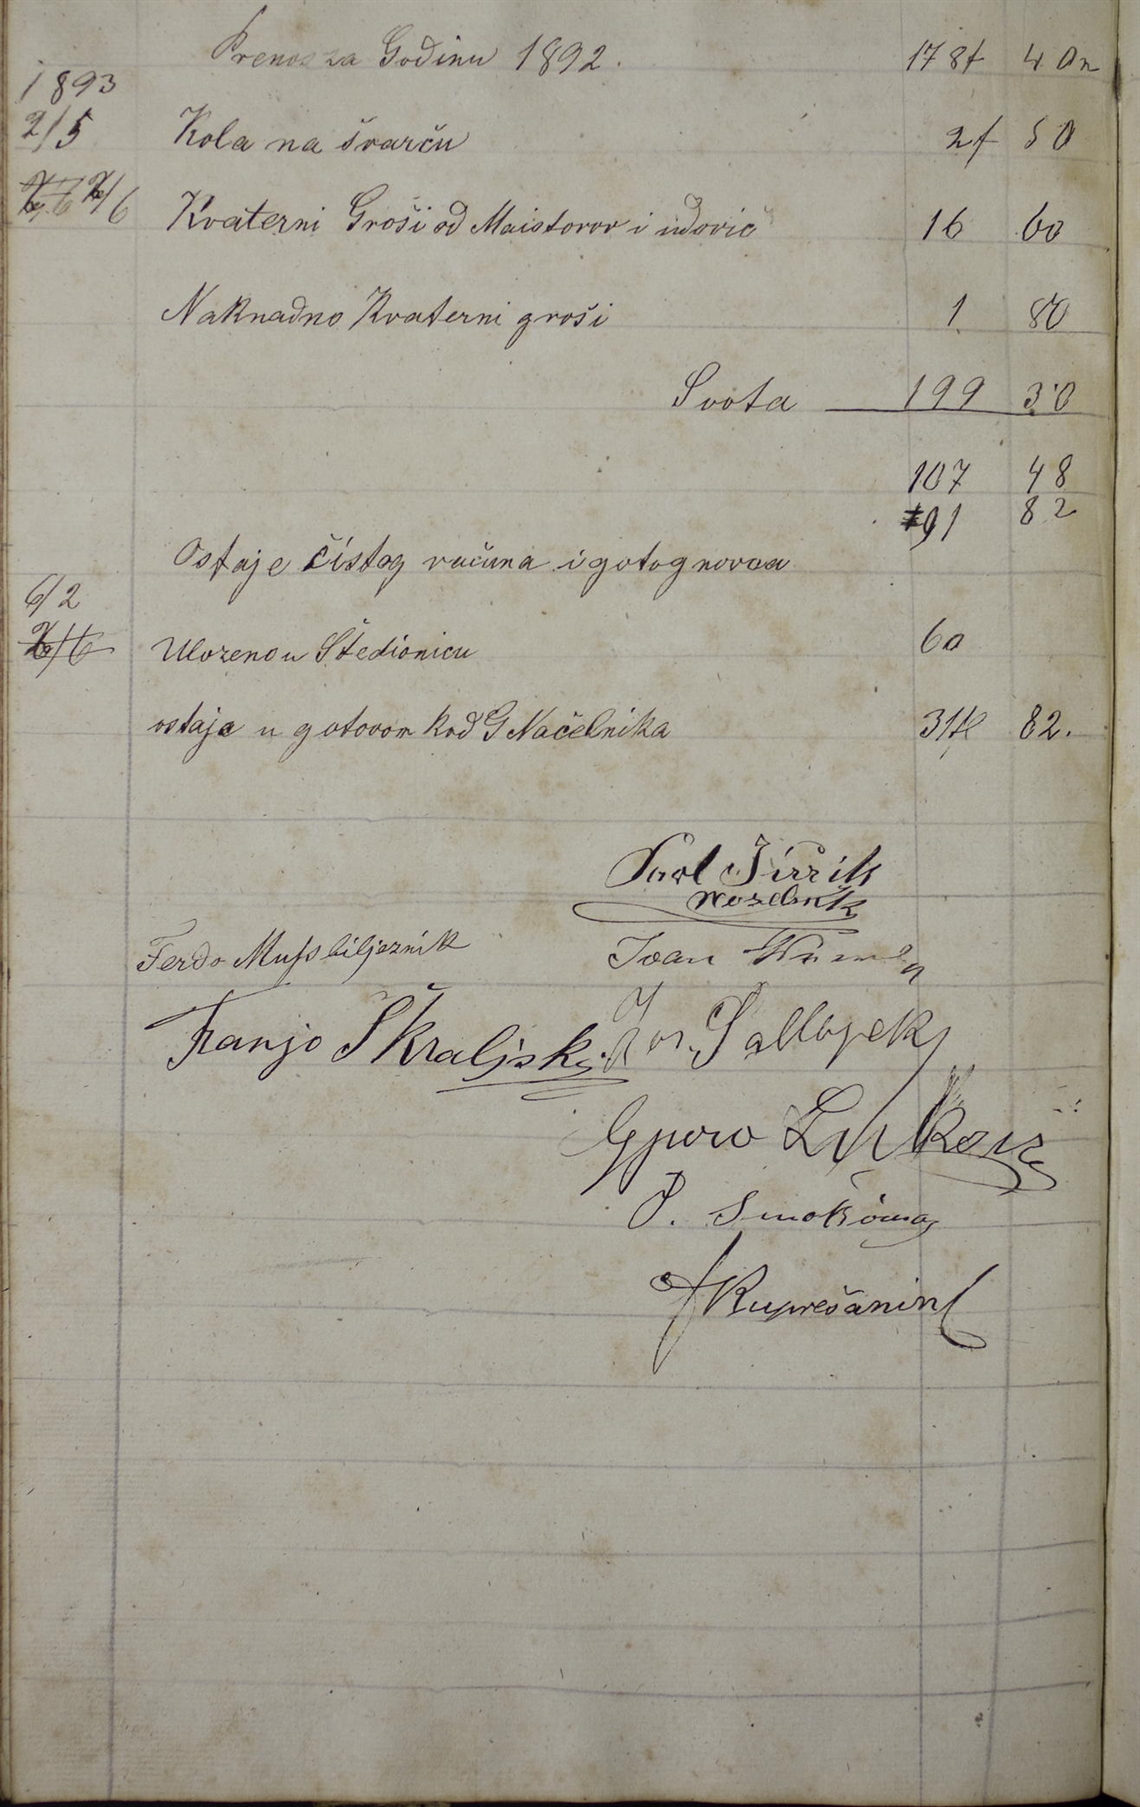 Prenos za Godinu 1892. 178f 40n
1893
2/5 Kola na švarču 2f 50
2/6 Kvaterni Groši od Maistorov i udovic 16 60
Naknadno Kvaterni groši 1 80
Svota 199 30
107 48
91 82
Ostaje čistog računa i gotog novca
6/2
Ulozeno u Štedionicu 60
ostaje u gotovom kod G Načelnika 31fl 82.
Ferdo Muſs biljeznik Ivan
Franjo Škraljski
Gjuro
P.
Kuprešanin